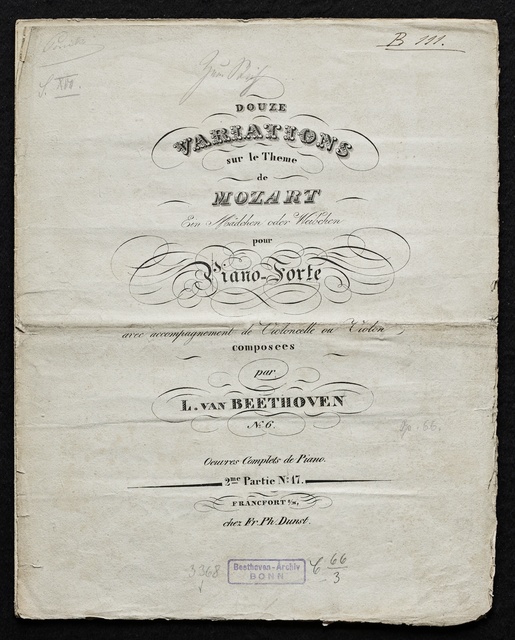 B 111.
S. XVI.
DOUZE
VARIATIONS
sur le Theme
de
MOZART
Ein Mädchen oder Weibchen
pour
Piano-Forte
avec accompagnement de Violoncelle ou Violon
composées
par
L. VAN BEETHOVEN
No. 6.
Op. 66.
Oeuvres Complets de Piano.
2me Partie No: 17.
FRANCFORT s/m,
chez Fr. Ph. Dunst.
3368
Beethoven-Archiv
BONN
C 66/3